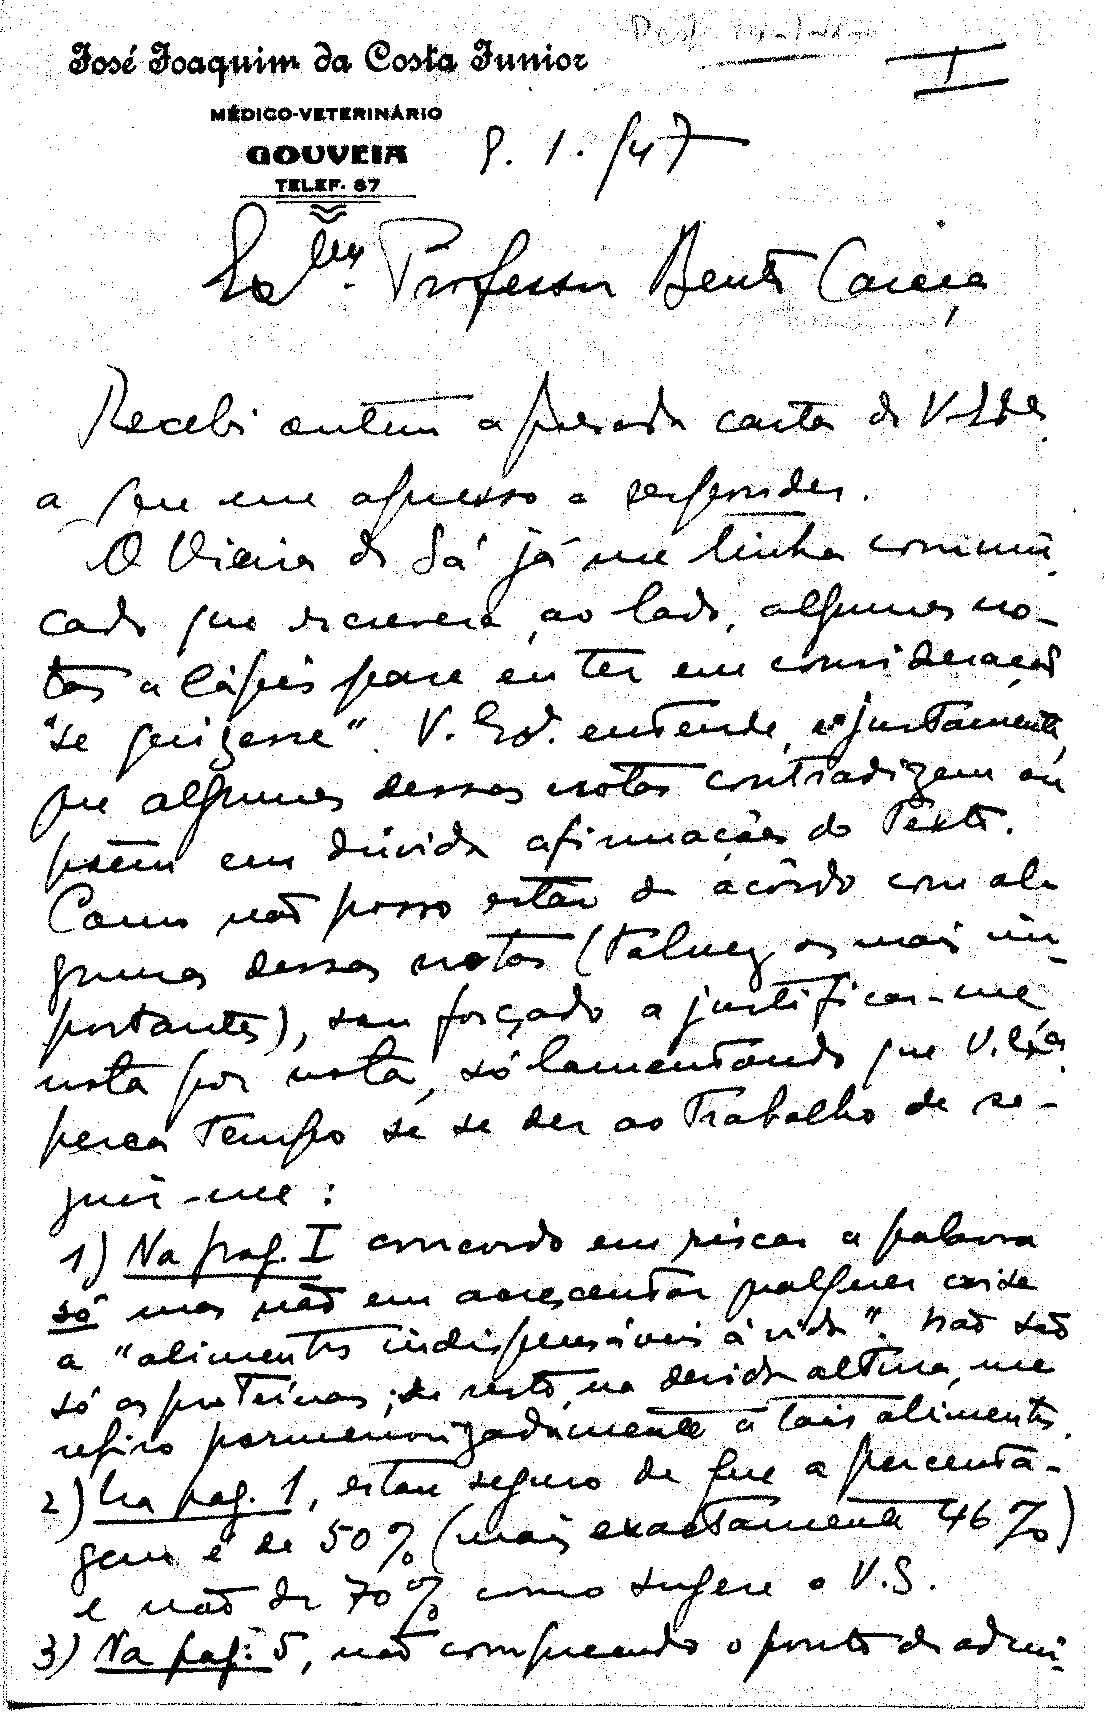 José Joaquim da Costa Junior
MÉDICO-VETERINÁRIO
GOUVEIA
TELEF. 87
I
9. 1. 947
Exmo. Professor Bento Caraça
Recebi ontem a prezada carta de V. Exa.
a que me apresso a responder.
O Vieira de Sá já me tinha comuni-
cado que escrevera, ao lado, algumas no-
tas a lápis para eu ter em consideração
"se quizesse". V. Exa. entende, e justamente,
que algumas dessas notas contradizem ou
põem em dúvida afirmações do texto.
Como não posso estar de acôrdo com al-
gumas dessas notas (talvez as mais im-
portantes), sou forçado a justificar-me
nota por nota, só lamentando que V. Exa.
perca tempo se se der ao trabalho de se-
guir-me:
1) Na pag. I concordo em riscar a palavra
só mas não em acrescentar qualquer coisa
a "alimentos indispensáveis à vida". Não são
só as proteínas; de resto, na devida altura, me
refiro pormenorizadamente a tais alimentos.
2) Na pag. 1, estou seguro de que a percenta-
gem é de 50% (mais exactamente 46%)
e não de 70% como sugere o V.S.
3) Na pag. 5, não compreendo o ponto de admi-